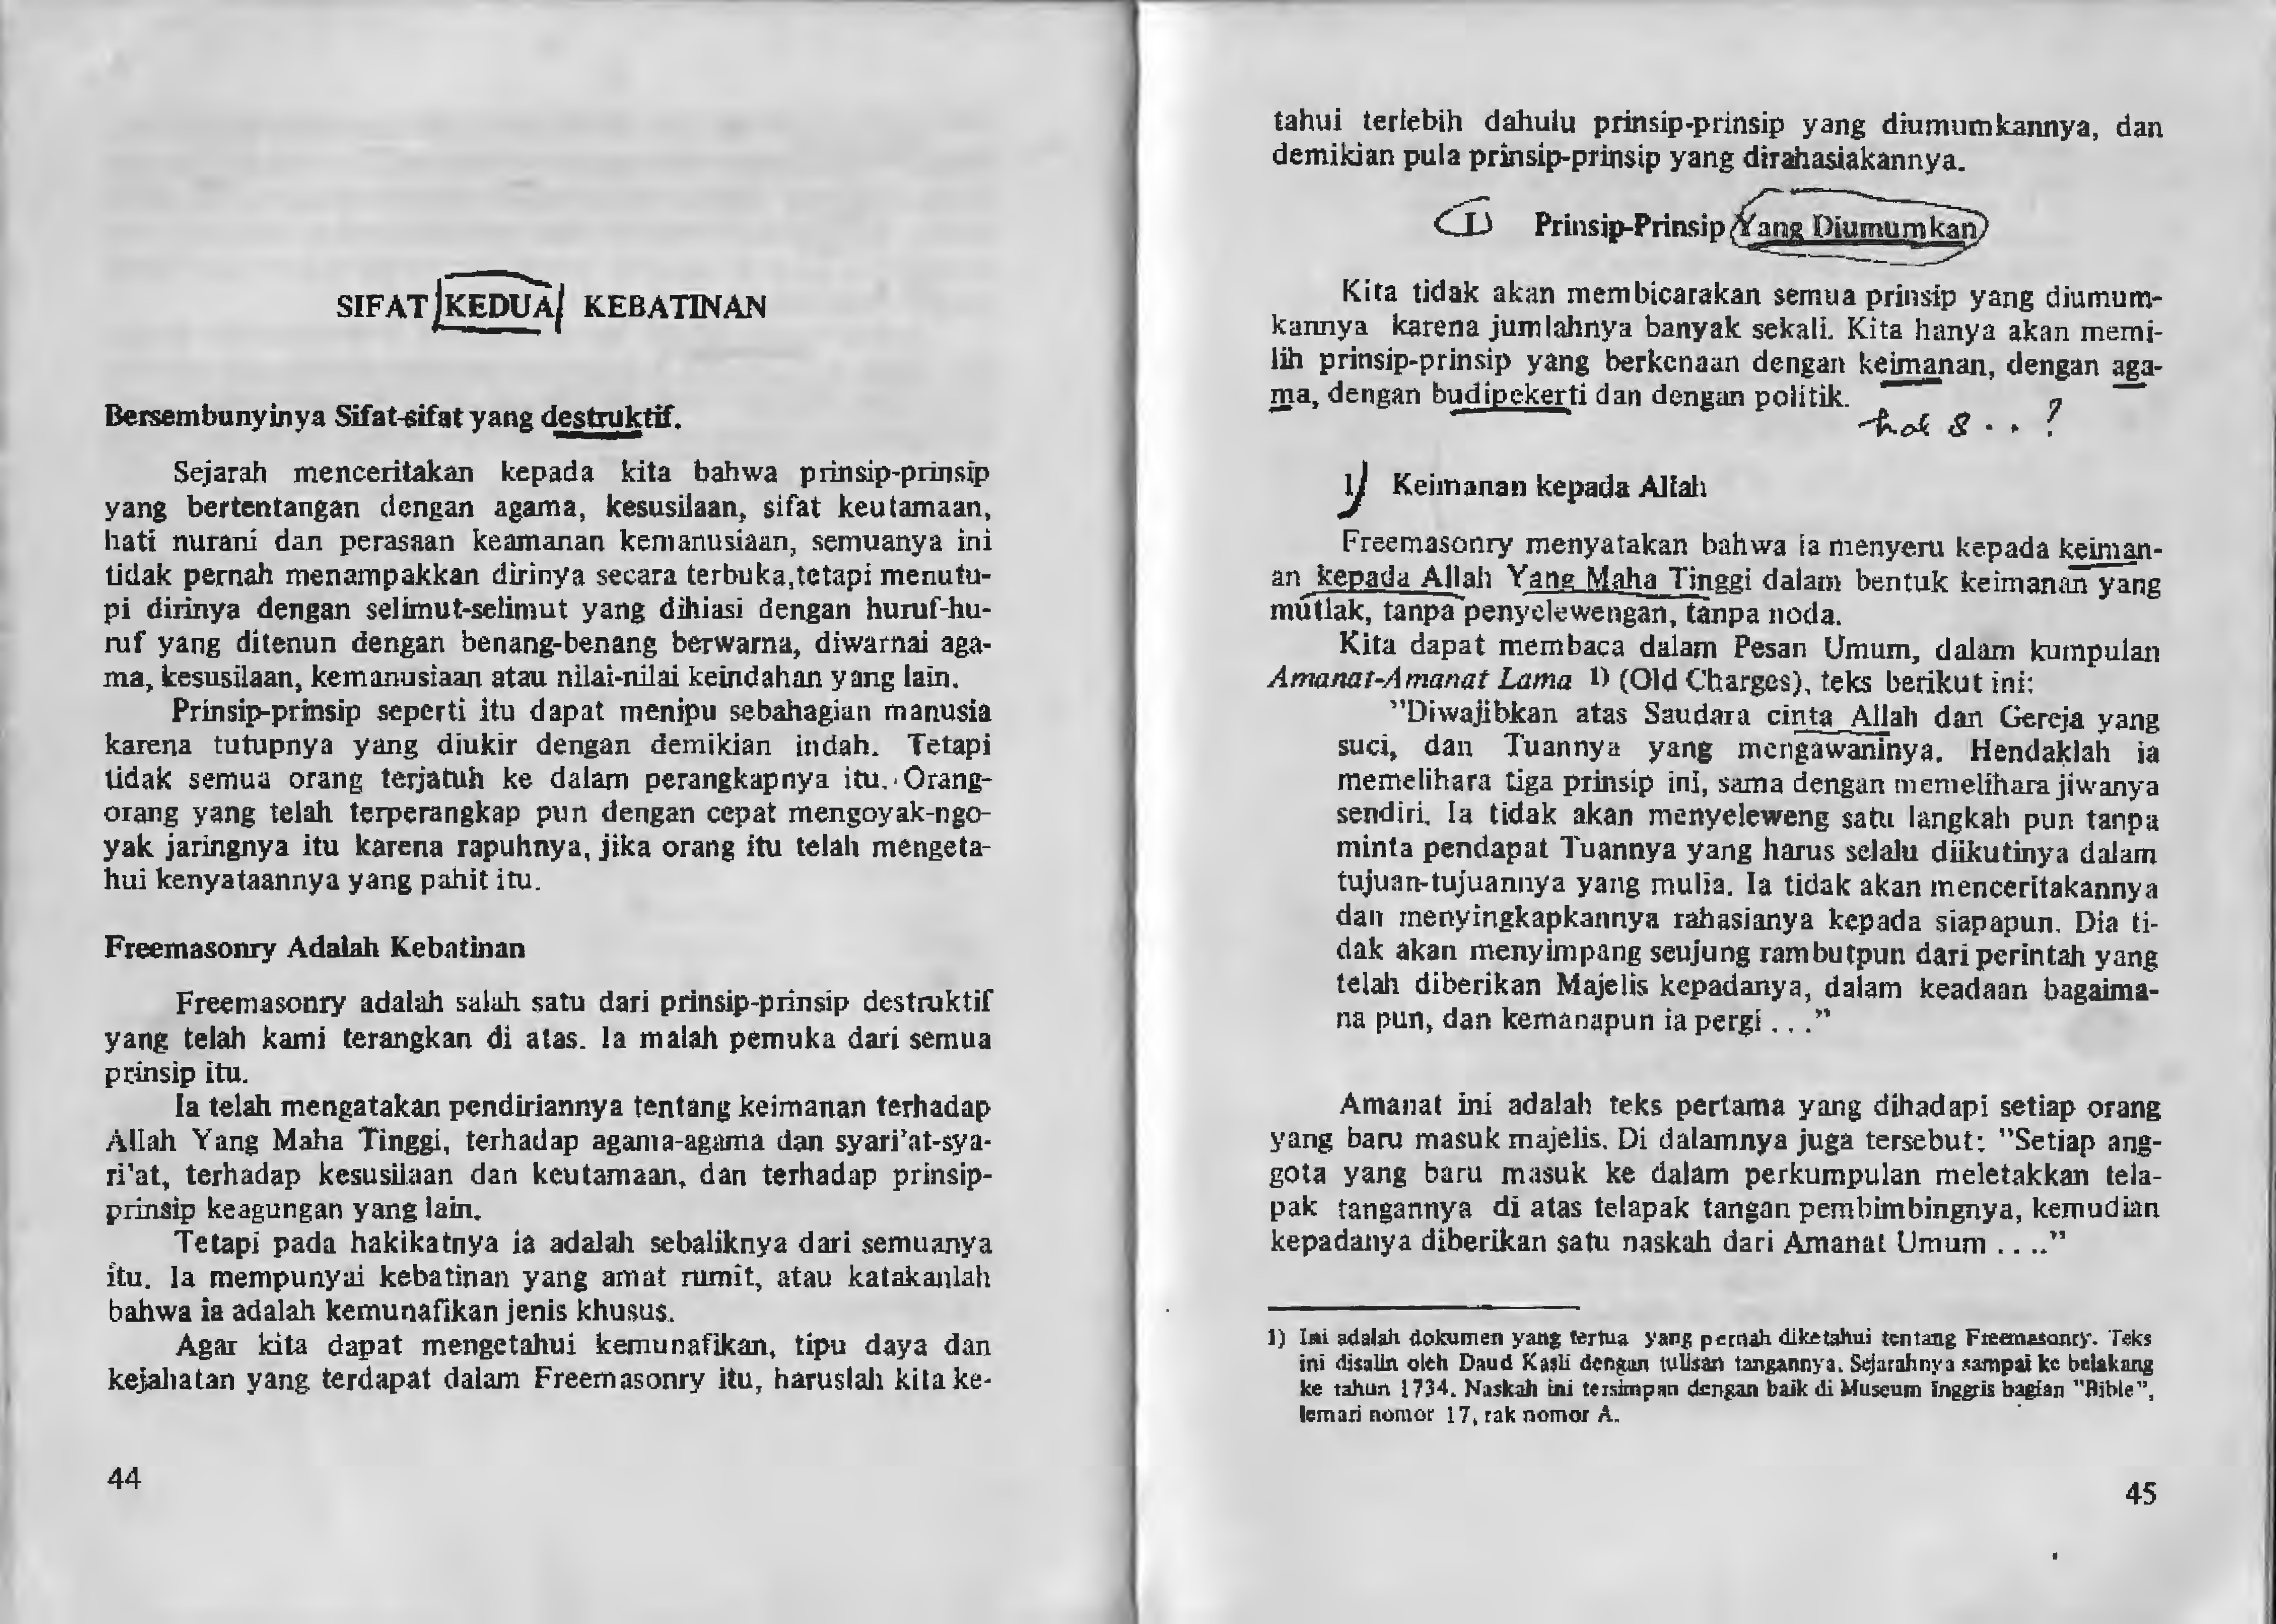 SIFAT KEDUA KEBATINAN
Bersembunyinya Sifat-sifat yang destruktif.
Sejarah menceritakan kepada kita bahwa prinsip-prinsip
yang bertentangan dengan agama, kesusilaan, sifat keutamaan,
hati nurani dan perasaan keamanan kemanusiaan, semuanya ini
tidak pernah menampakkan dirinya secara terbuka,tetapi menutu-
pi dirinya dengan selimut-selimut yang dihiasi dengan huruf-hu-
ruf yang ditenun dengan benang-benang berwarna, diwarnai aga-
ma, kesusilaan, kemanusiaan atau nilai-nilai keindahan yang lain.
Prinsip-prinsip seperti itu dapat menipu sebahagian manusia
karena tutupnya yang diukir dengan demikian indah. Tetapi
tidak semua orang terjatuh ke dalam perangkapnya itu. Orang-
orang yang telah terperangkap pun dengan cepat mengoyak-ngo-
yak jaringnya itu karena rapuhnya, jika orang itu telah mengeta-
hui kenyataannya yang pahit itu.
Freemasonry Adalah Kebatinan
Freemasonry adalah salah satu dari prinsip-prinsip destruktif
yang telah kami terangkan di atas. Ia malah pemuka dari semua
prinsip itu.
Ia telah mengatakan pendiriannya tentang keimanan terhadap
Allah Yang Maha Tinggi, terhadap agama-agama dan syari'at-sya-
ri'at, terhadap kesusilaan dan keutamaan, dan terhadap prinsip-
prinsip keagungan yang lain.
Tetapi pada hakikatnya ia adalah sebaliknya dari semuanya
itu. Ia mempunyai kebatinan yang amat rumit, atau katakanlah
bahwa ia adalah kemunafikan jenis khusus.
Agar kita dapat mengetahui kemunafikan, tipu daya dan
kejahatan yang terdapat dalam Freemasonry itu, haruslah kita ke-
44
tahui terlebih dahulu prinsip-prinsip yang diumumkannya, dan
demikian pula prinsip-prinsip yang dirahasiakannya.
I) Prinsip-Prinsip Yang Diumumkan
Kita tidak akan membicarakan semua prinsip yang diumum-
kannya karena jumlahnya banyak sekali. Kita hanya akan memi-
lih prinsip-prinsip yang berkenaan dengan keimanan, dengan aga-
ma, dengan budipekerti dan dengan politik.
hal 8 . . ?
1) Keimanan kepada Allah
Freemasonry menyatakan bahwa ia menyeru kepada keiman-
an kepada Allah Yang Maha Tinggi dalam bentuk keimanan yang
mutlak, tanpa penyelewengan, tanpa noda.
Kita dapat membaca dalam Pesan Umum, dalam kumpulan
Amanat-Amanat Lama 1) (Old Charges), teks berikut ini:
"Diwajibkan atas Saudara cinta Allah dan Gereja yang
suci, dan Tuannya yang mengawaninya. Hendaklah ia
memelihara tiga prinsip ini, sama dengan memelihara jiwanya
sendiri. Ia tidak akan menyeleweng satu langkah pun tanpa
minta pendapat Tuannya yang harus selalu diikutinya dalam
tujuan-tujuannya yang mulia. Ia tidak akan menceritakannya
dan menyingkapkannya rahasianya kepada siapapun. Dia ti-
dak akan menyimpang seujung rambutpun dari perintah yang
telah diberikan Majelis kepadanya, dalam keadaan bagaima-
na pun, dan kemanapun ia pergi . . ."
Amanat ini adalah teks pertama yang dihadapi setiap orang
yang baru masuk majelis. Di dalamnya juga tersebut: "Setiap ang-
gota yang baru masuk ke dalam perkumpulan meletakkan tela-
pak tangannya di atas telapak tangan pembimbingnya, kemudian
kepadanya diberikan satu naskah dari Amanat Umum . . .."
1) Ini adalah dokumen yang tertua yang pernah diketahui tentang Freemasonry. Teks
ini disalin oleh Daud Kasli dengan tulisan tangannya. Sejarahnya sampai ke belakang
ke tahun 1734. Naskah ini tersimpan dengan baik di Museum Inggris bagian "Bible",
lemari nomor 17, rak nomor A.
45